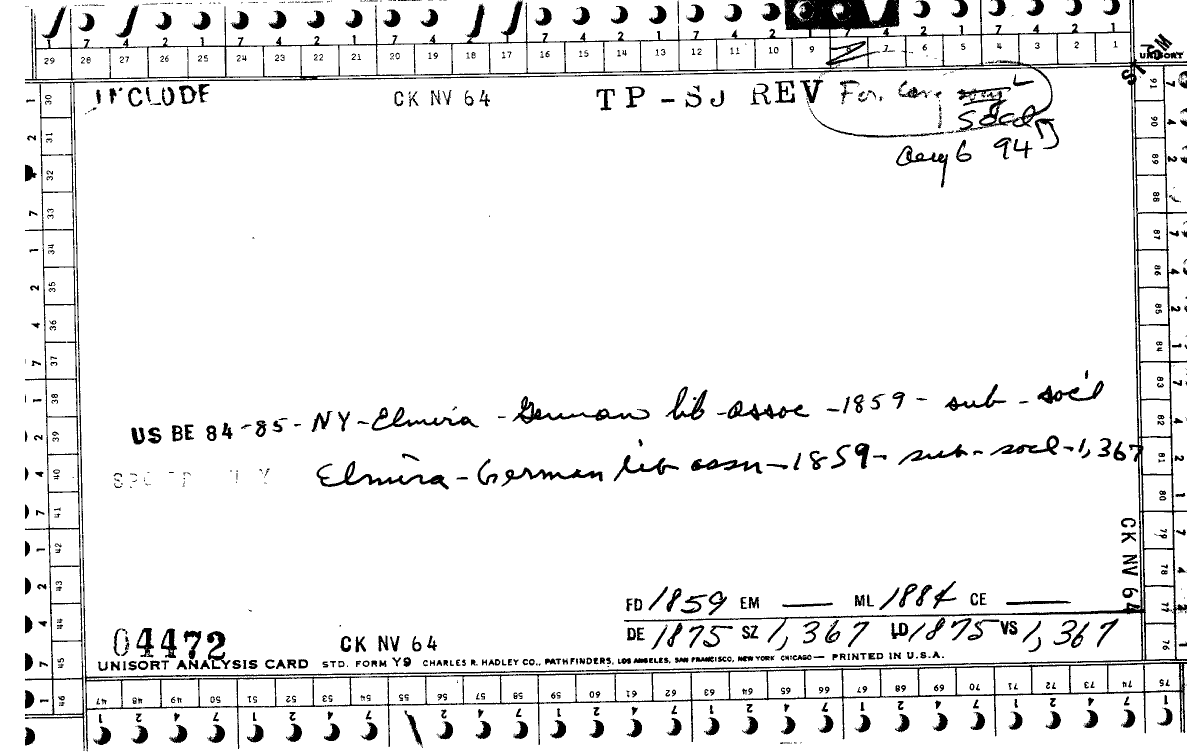 7 4 2 1 7 4 2 1 7 4 2 1 7 4 2 1 7 4 2 1
29 28 27 26 25 24 23 22 21 20 19 18 17 16 15 14 13 12 11 10 9 7 6 5 4 3 2 1 UNISORT
INCLUDE CK NV 64 TP - SJ REV For.
Socl
94
US BE 84-85 - NY - Elmira - German lib - assoc - 1859 - sub - soc'l
Elmira - German lib assn - 1859 - sub - socl - 1,367
CK NV 64
FD 1859 EM — ML 1884 CE —
DE 1875 SZ 1,367 LD 1875 VS 1,367
04472 CK NV 64
UNISORT ANALYSIS CARD STD. FORM Y9 CHARLES R. HADLEY CO., PATHFINDERS, LOS ANGELES, SAN FRANCISCO, NEW YORK CHICAGO — PRINTED IN U.S.A.
47 48 49 50 51 52 53 54 55 56 57 58 59 60 61 62 63 64 65 66 67 68 69 70 71 72 73 74 75